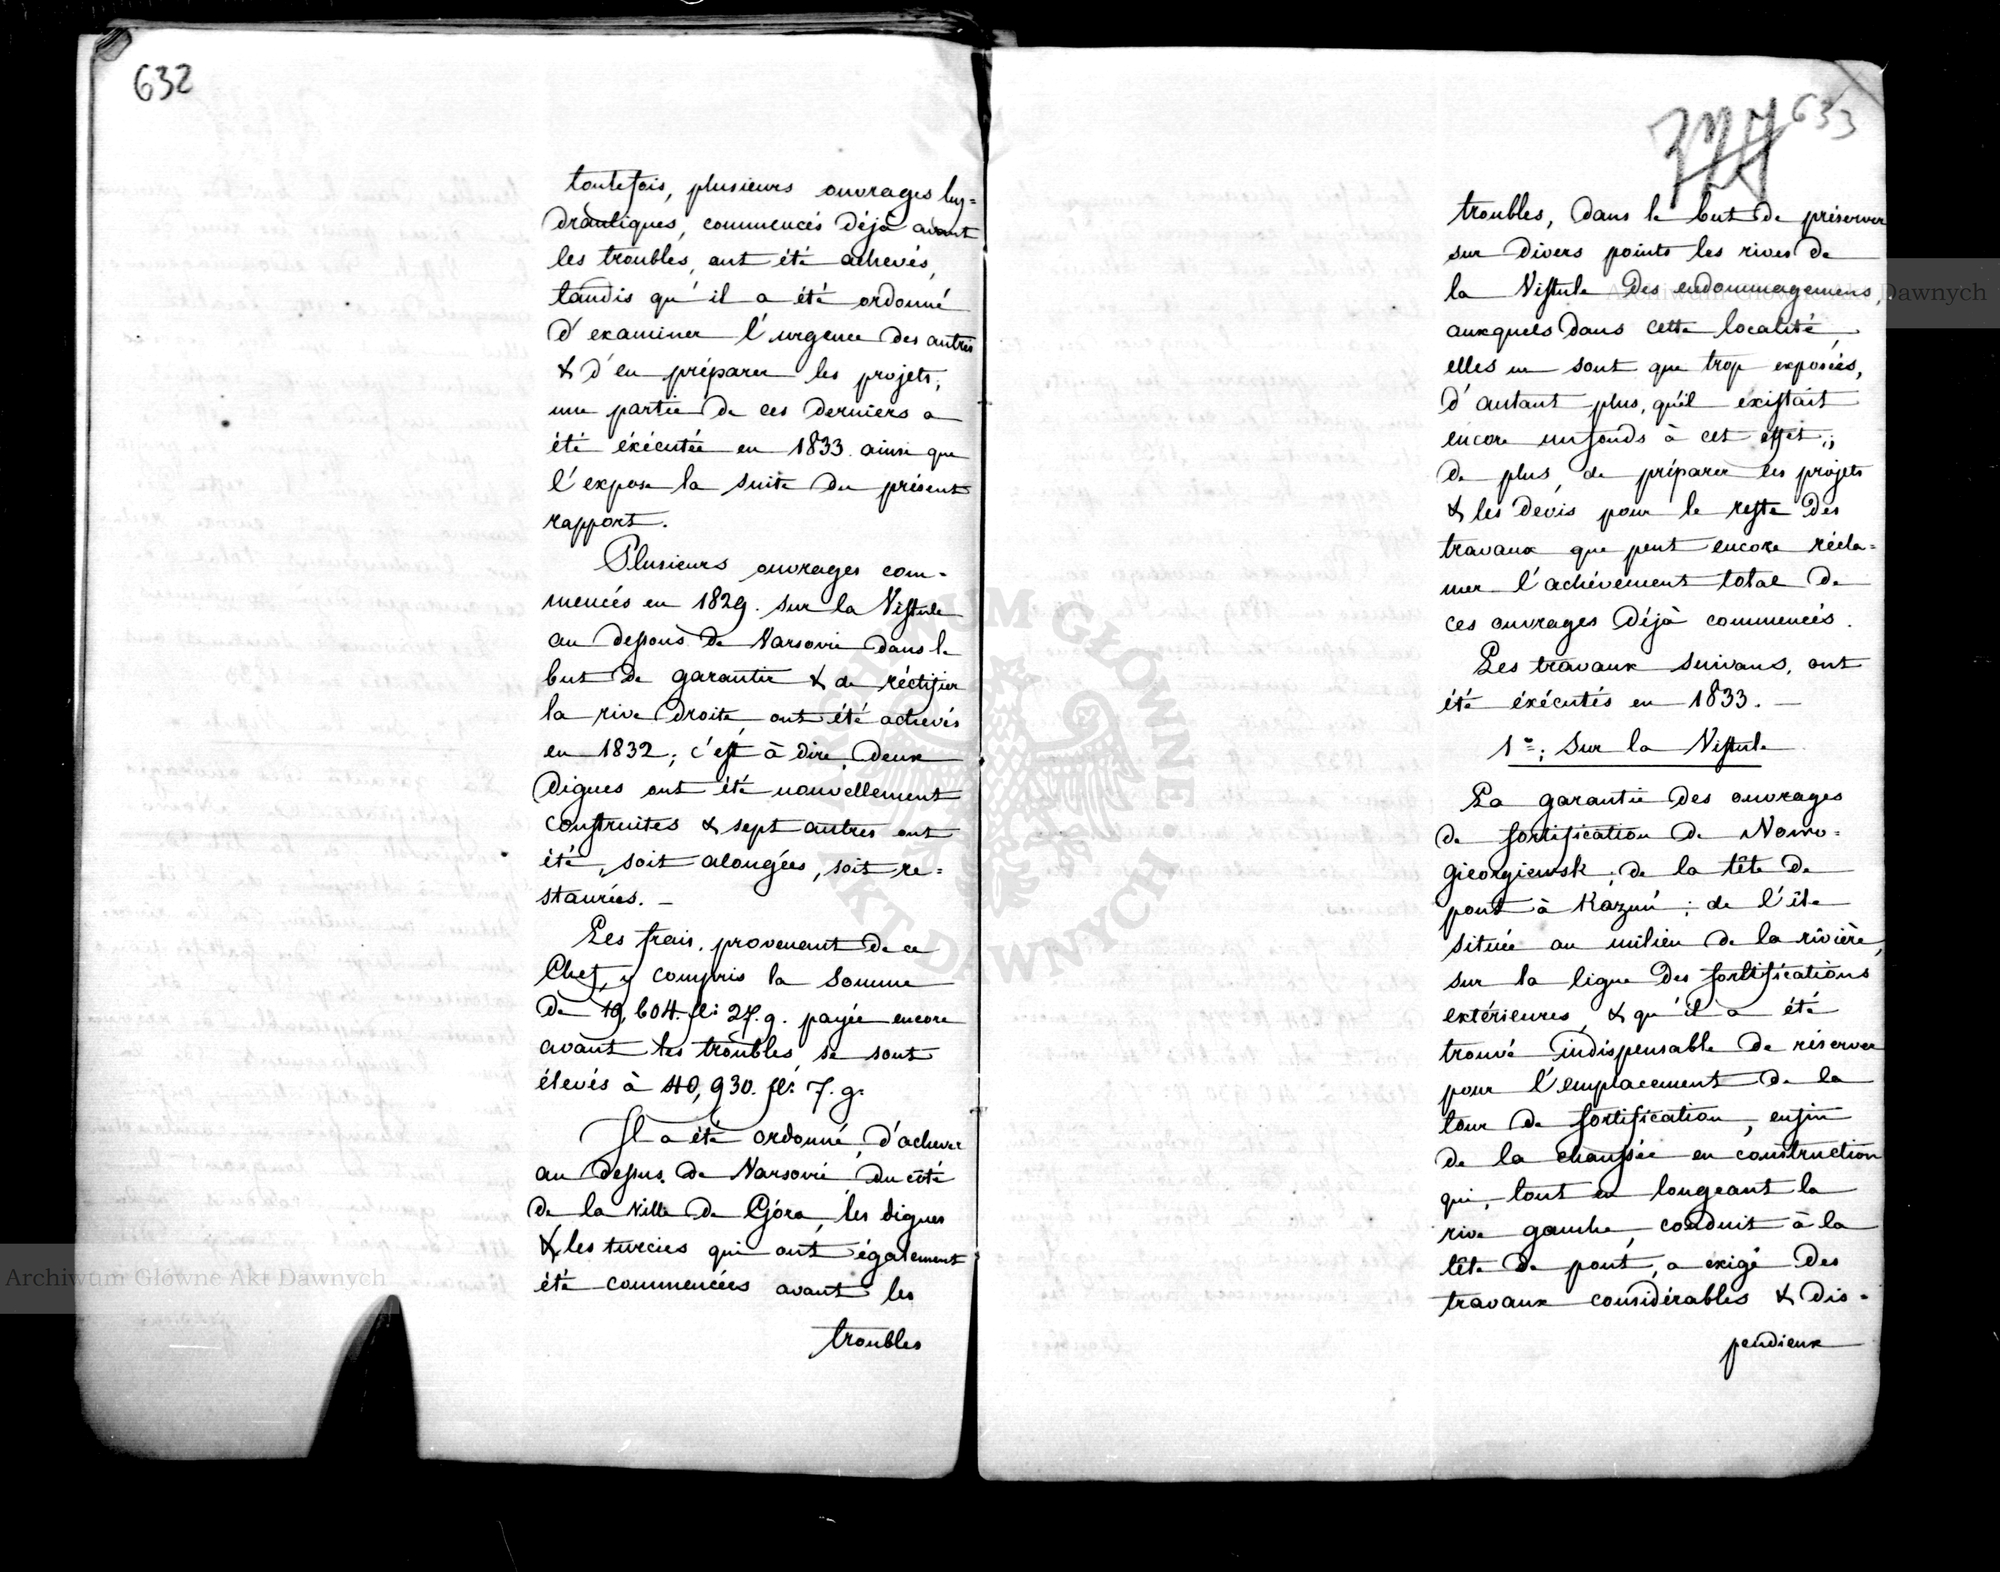 632
toutefois, plusieurs ouvrages hy=
drauliques, commencés déjà avant
les troubles, ont été achevés,
tandis qu'il a été ordonné
d'examiner l'urgence des autres
& d'en préparer les projets;
une partie de ces derniers a
été éxécutée en 1833. ainsi que
l'expose la suite du présent
rapport.
Plusieurs ouvrages com=
mencés en 1829. sur la Vistule
au dessous de Varsovie dans le
but de garantir & de réctifier
la rive droite ont été achevés
en 1832; c'est à dire, deux
digues ont été nouvellement
construites & sept autres ont
été, soit alongées, soit re=
staurées. –
Les frais, provenant de ce
Chef, y compris la somme
de 19,604. fl: 27. g. payée encore
avant les troubles, se sont
élevés à 40,930. fl: 7. g.
Il a été ordonné, d'achever
au dessus de Varsovie du côté
de la Ville de Góra, les digues
& les turcies qui ont également
été commencées avant les
troubles
327
633
troubles, dans le but de préserver
sur divers points les rives de
la Vistule des endommagemens,
auxquels dans cette localité,
elles ne sont que trop exposées,
d'autant plus, qu'il existait
encore un fonds à cet effet;
de plus, de préparer les projets
& les devis pour le reste des
travaux que peut encore récla=
mer l'achèvement total de
ces ouvrages déjà commencés.
Les travaux suivans, ont
été éxécutés en 1833. –
1º; Sur la Vistule
La garantie des ouvrages
de fortification de Nowo=
gieorgiewsk; de la tête de
pont à Kazuń; de l'île
située au milieu de la rivière,
sur la ligne des fortifications
extérieures, & qu'il a été
trouvé indispensable de réserver
pour l'emplacement de la
tour de fortification, enfin
de la chaussée en construction
qui, tout en longeant la
rive gauche, conduit à la
tête de pont, a exigé des
travaux considérables & dis=
pendieux
Archiwum Główne Akt Dawnych
Archiwum Główne Akt Dawnych
ARCHIWUM GŁÓWNE AKT DAWNYCH